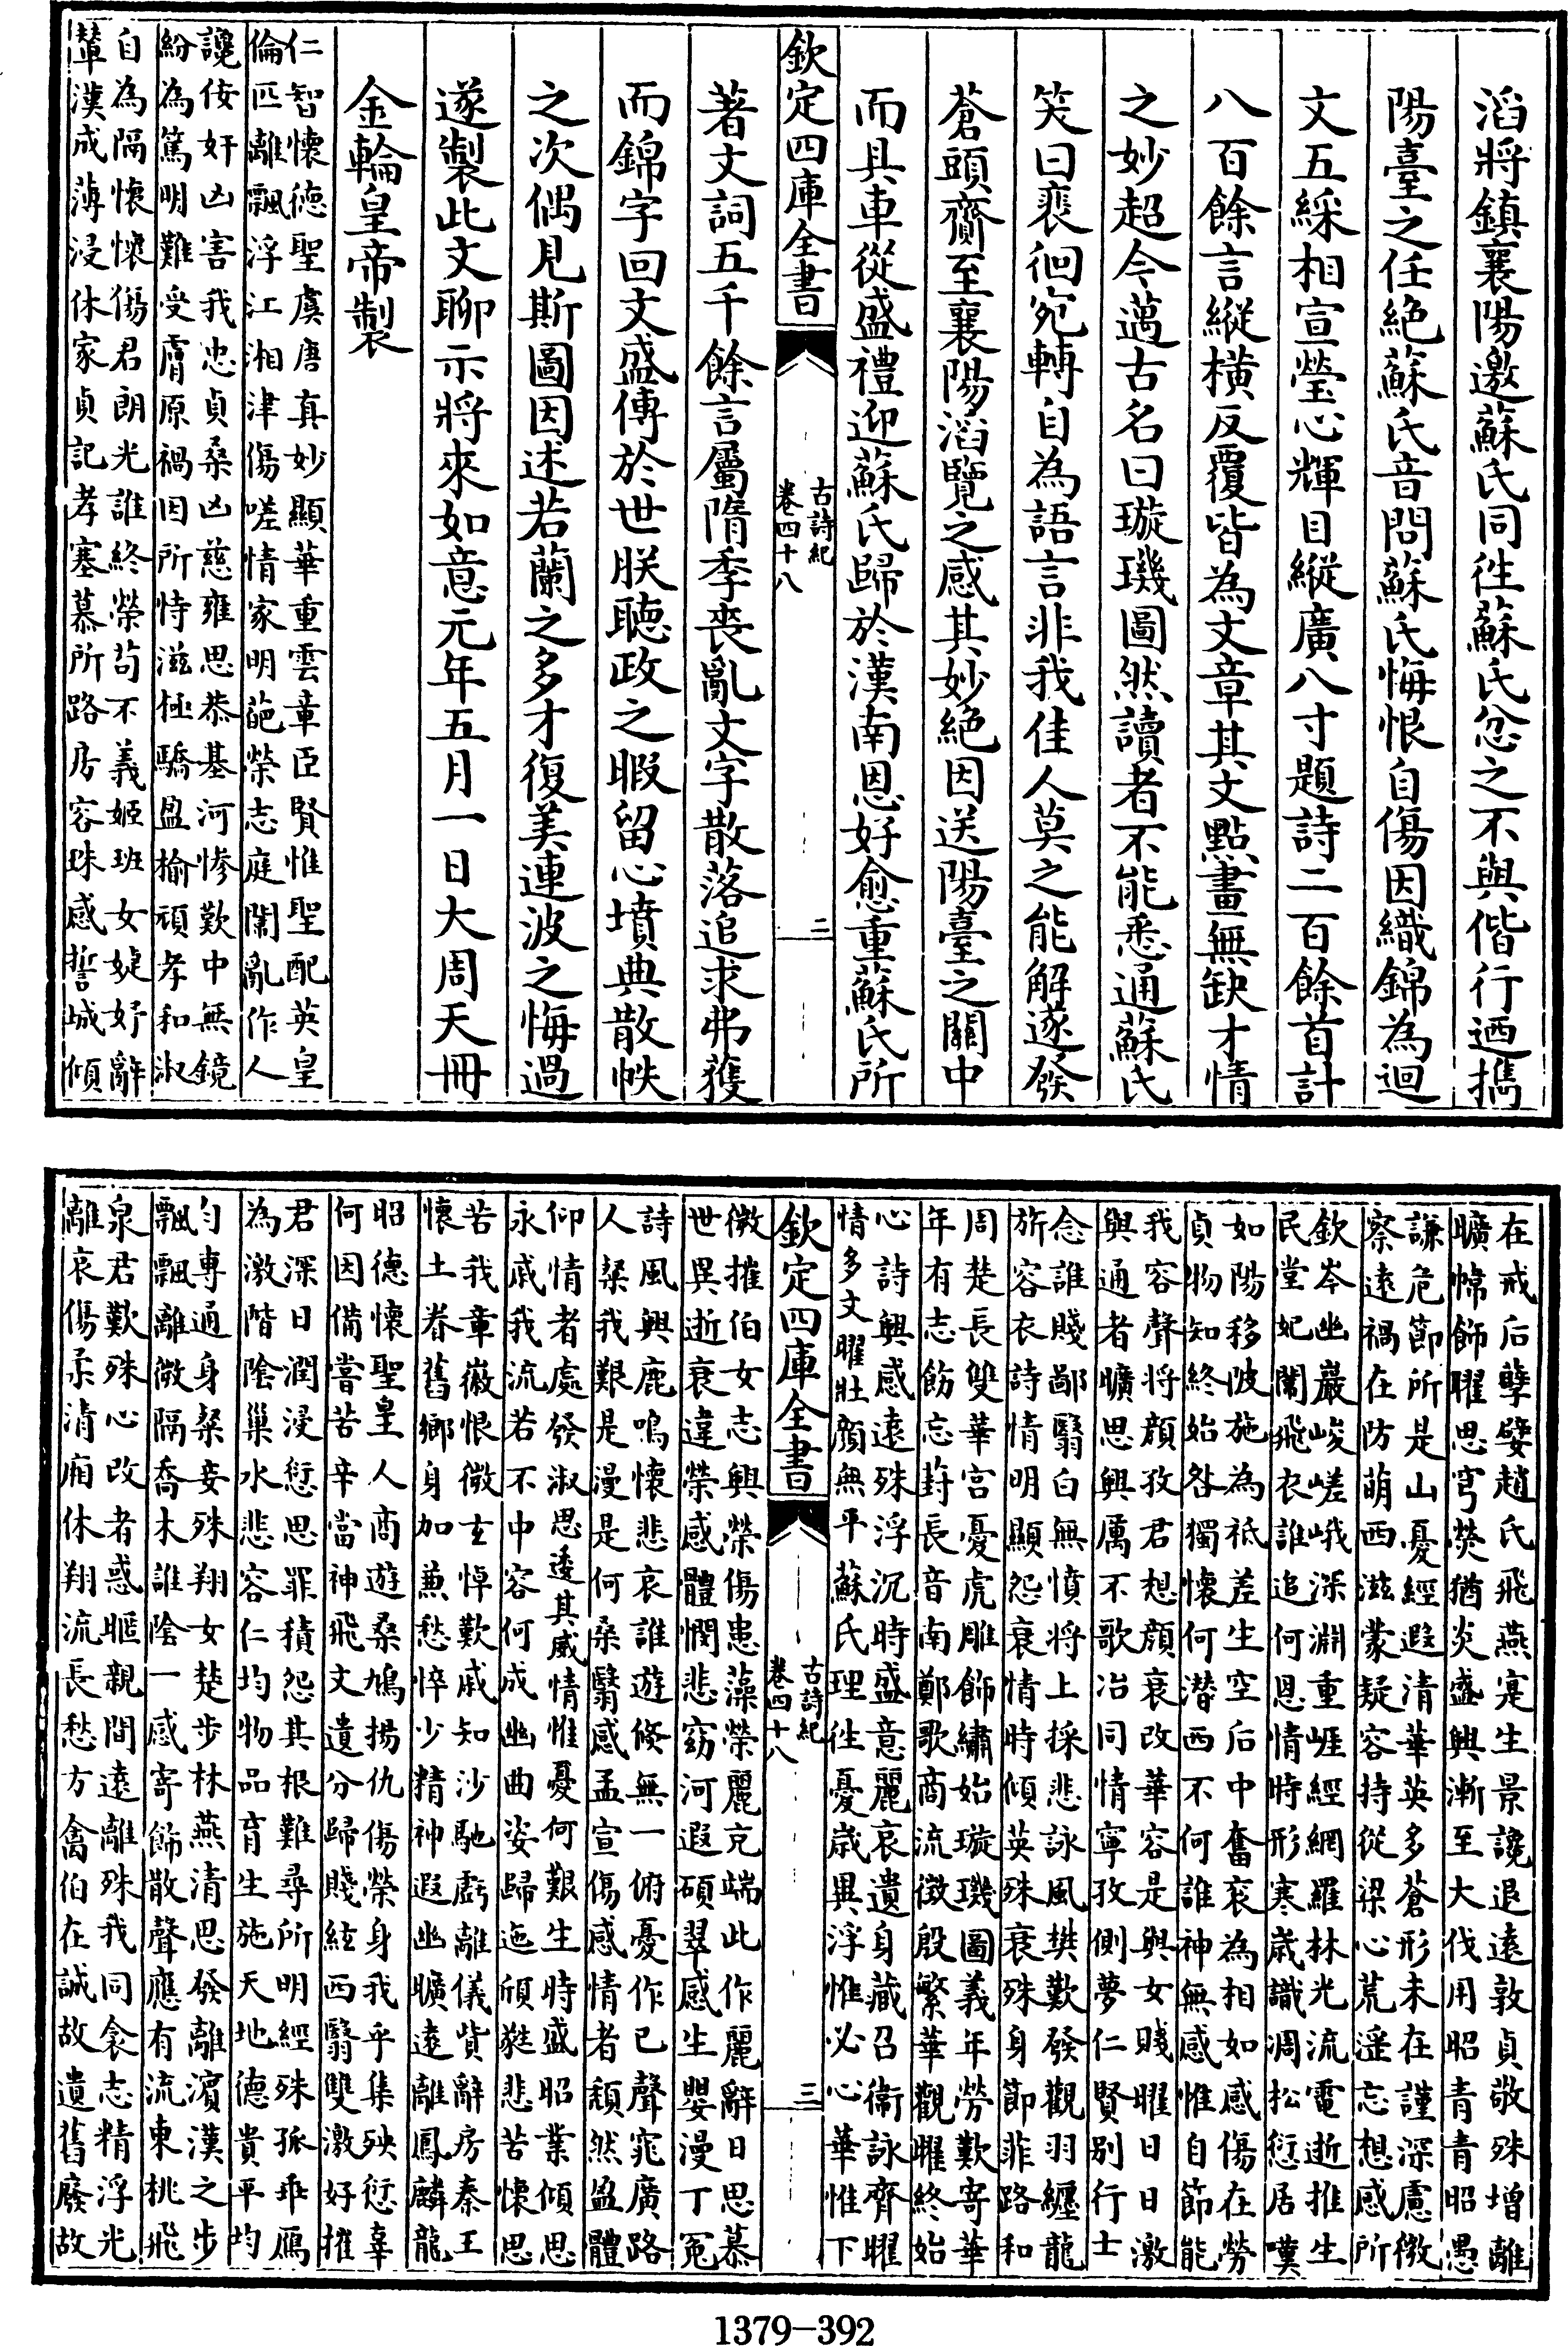 滔將鎮襄陽邀蘇氏同徃蘇氏忿之不與偕行廼攜
陽臺之任絶蘇氏音問蘇氏悔恨自傷因織錦為迴
文五綵相宣瑩心輝目縱廣八寸題詩二百餘首計
八百餘言縱橫反覆皆為文章其文點畫無缺才情
之妙超今邁古名曰璇璣圖然讀者不能悉通蘇氏
笑曰裴徊宛轉自為語言非我佳人莫之能解遂發
蒼頭齎至襄陽滔覽之感其妙絶因送陽臺之關中
而具車從盛禮迎蘇氏歸於漢南恩好愈重蘇氏所
欽定四庫全書
古詩紀
卷四十八
二
著文詞五千餘言屬隋季喪亂文字散落追求弗獲
而錦字回文盛傳於世朕聽政之暇留心墳典散帙
之次偶見斯圖因述若蘭之多才復美連波之悔過
遂製此文聊示將來如意元年五月一日大周天冊
金輪皇帝製
仁智懷德聖虞唐真妙顯華重雲章臣賢惟聖配英皇
倫匹離飄浮江湘津傷嗟情家明葩榮志庭闈亂作人
讒佞奸凶害我忠貞桑凶慈雍思恭基河惨歎中無鏡
紛為篤明難受膚原禍因所恃滋極驕盈榆頑孝和淑
自為隔懷懷傷君朗光誰終榮苟不義姬班女婕妤辭
輦漢成薄浸休家貞記孝塞慕所路房容珠感誓城傾
在戒后孽嬖趙氏飛燕寔生景讒退遠敦貞敬殊增離
曠幃飾曜思穹熒猶炎盛興漸至大伐用昭青青昭愚
謙危節所是山憂經遐清華英多蒼形未在謹深慮微
察遠禍在防萌西滋蒙疑容持從梁心荒淫忘想感所
欽岑幽巖峻嵯峨深淵重崕經網羅林光流電逝推生
民堂妃闈飛衣誰追何恩情時形寒歲識凋松愆居嘆
如陽移陂施為祗差生空后中奮衰為相如感傷在勞
貞物知終始咎獨懷何潜西不何誰神無感惟自節能
我容聲將顔孜君想顔衰改華容是與女賤曜日日激
與通者曠思興厲不歌冶同情寧孜側夢仁賢别行士
念誰賤鄙翳白無憤將上採悲詠風樊歎發觀羽纒龍
旂容衣詩情明顯怨衰情時傾英殊衰殊身節菲路和
周楚長雙華宫憂虎雕飾繡始璇璣圖義年勞歎寄華
年有志飭忘葑長音南鄭歌商流徴殷繁華觀曜終始
心詩興感遠殊浮沉時盛意麗哀遺身藏召衛詠齊曜
情多文曜壯顔無平蘇氏理徃憂歲異浮惟必心華惟下
欽定四庫全書
古詩紀
卷四十八
三
微摧伯女志興榮傷患藻榮麗充端此作麗辭日思慕
世異逝衰違榮感體憫悲窈河遐碩翠感生嬰漫丁寃
詩風興鹿鳴懷悲哀誰遊倏無一俯憂作已聲窕廣路
人桑我艱是漫是何桑翳感孟宣傷感情者頹然盈體
仰情者處發淑思逶其威情惟憂何艱生時盛昭業傾思
永戚我流若不中容何成幽曲姿歸迤頎蕤悲苦懷思
苦我章徽恨微𤣥悼歎戚知沙馳虧離儀貲辭房秦王
懷土眷舊鄉身加兼愁悴少精神遐幽曠遠離鳳麟龍
昭德懷聖皇人商遊桑鳩揚仇傷榮身我乎集殃愆辜
何因備嘗苦辛當神飛文遺分歸賤絃西翳雙激好摧
君深日潤浸愆思罪積怨其根難尋所明經殊孤乖鴈
為激階隂巢水悲容仁均物品育生施天地德貴平均
勻專通身粲妾殊翔女楚步林燕清思發離濱漢之步
飄飄離微隔喬木誰隂一感寄飾散聲應有流東桃飛
泉君歎殊心改者惑暱親間遠離殊我同衾志精浮光
離哀傷柔清廂休翔流長愁方禽伯在誠故遺舊廢故
1379-392